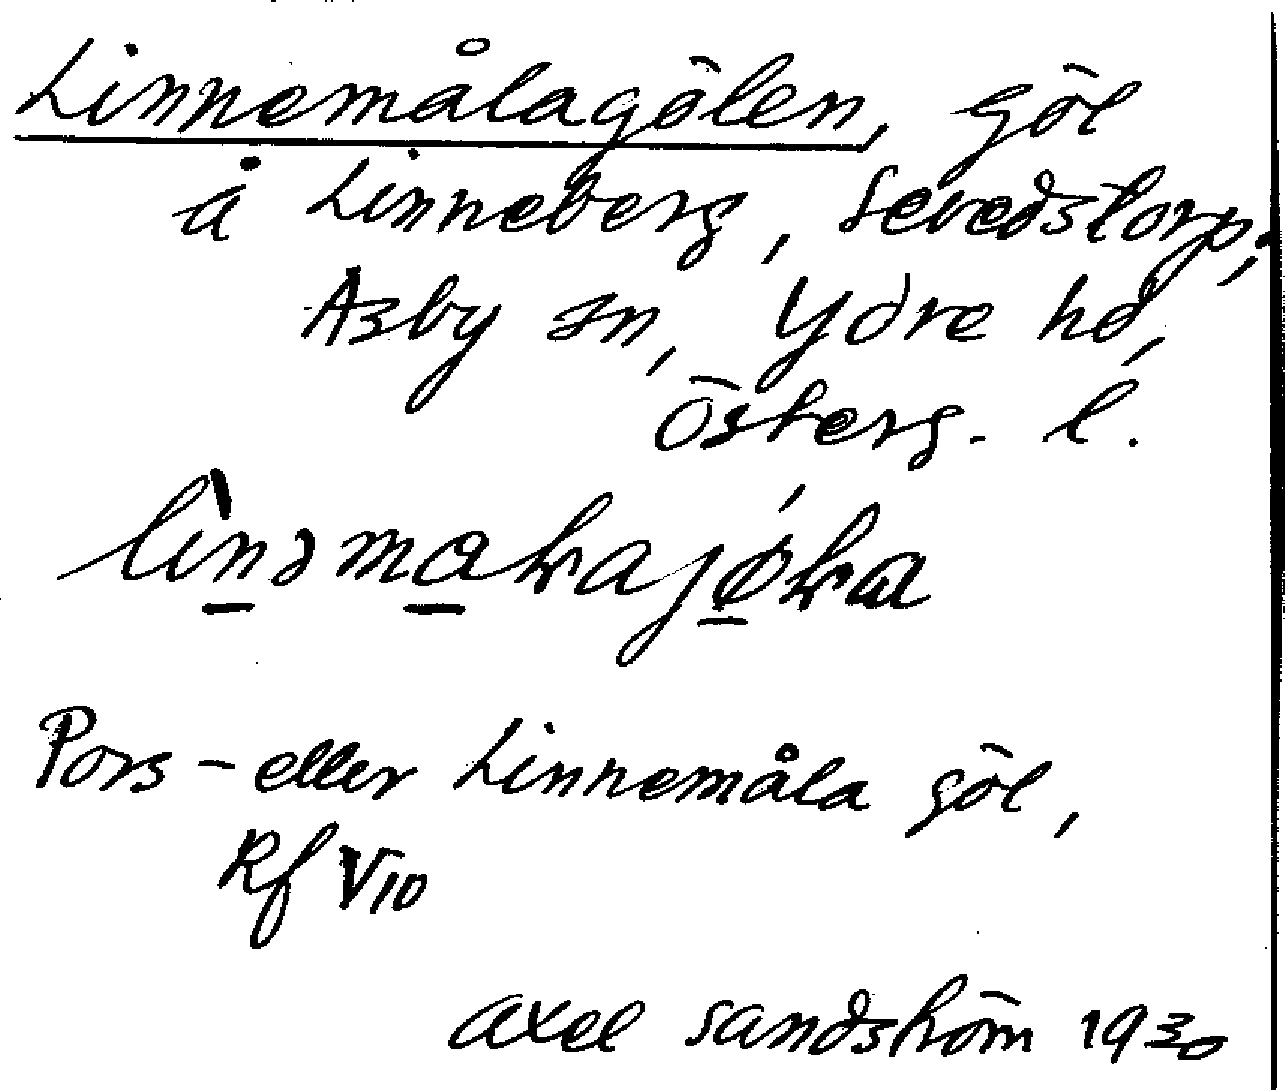 Linnemålagölen, göl
å Linneberg, Sevedstorp,
Asby sn, Ydre hd,
Österg. l.
Pors- eller Linnemåla göl,
Rf V10
Axel Sandström 1930